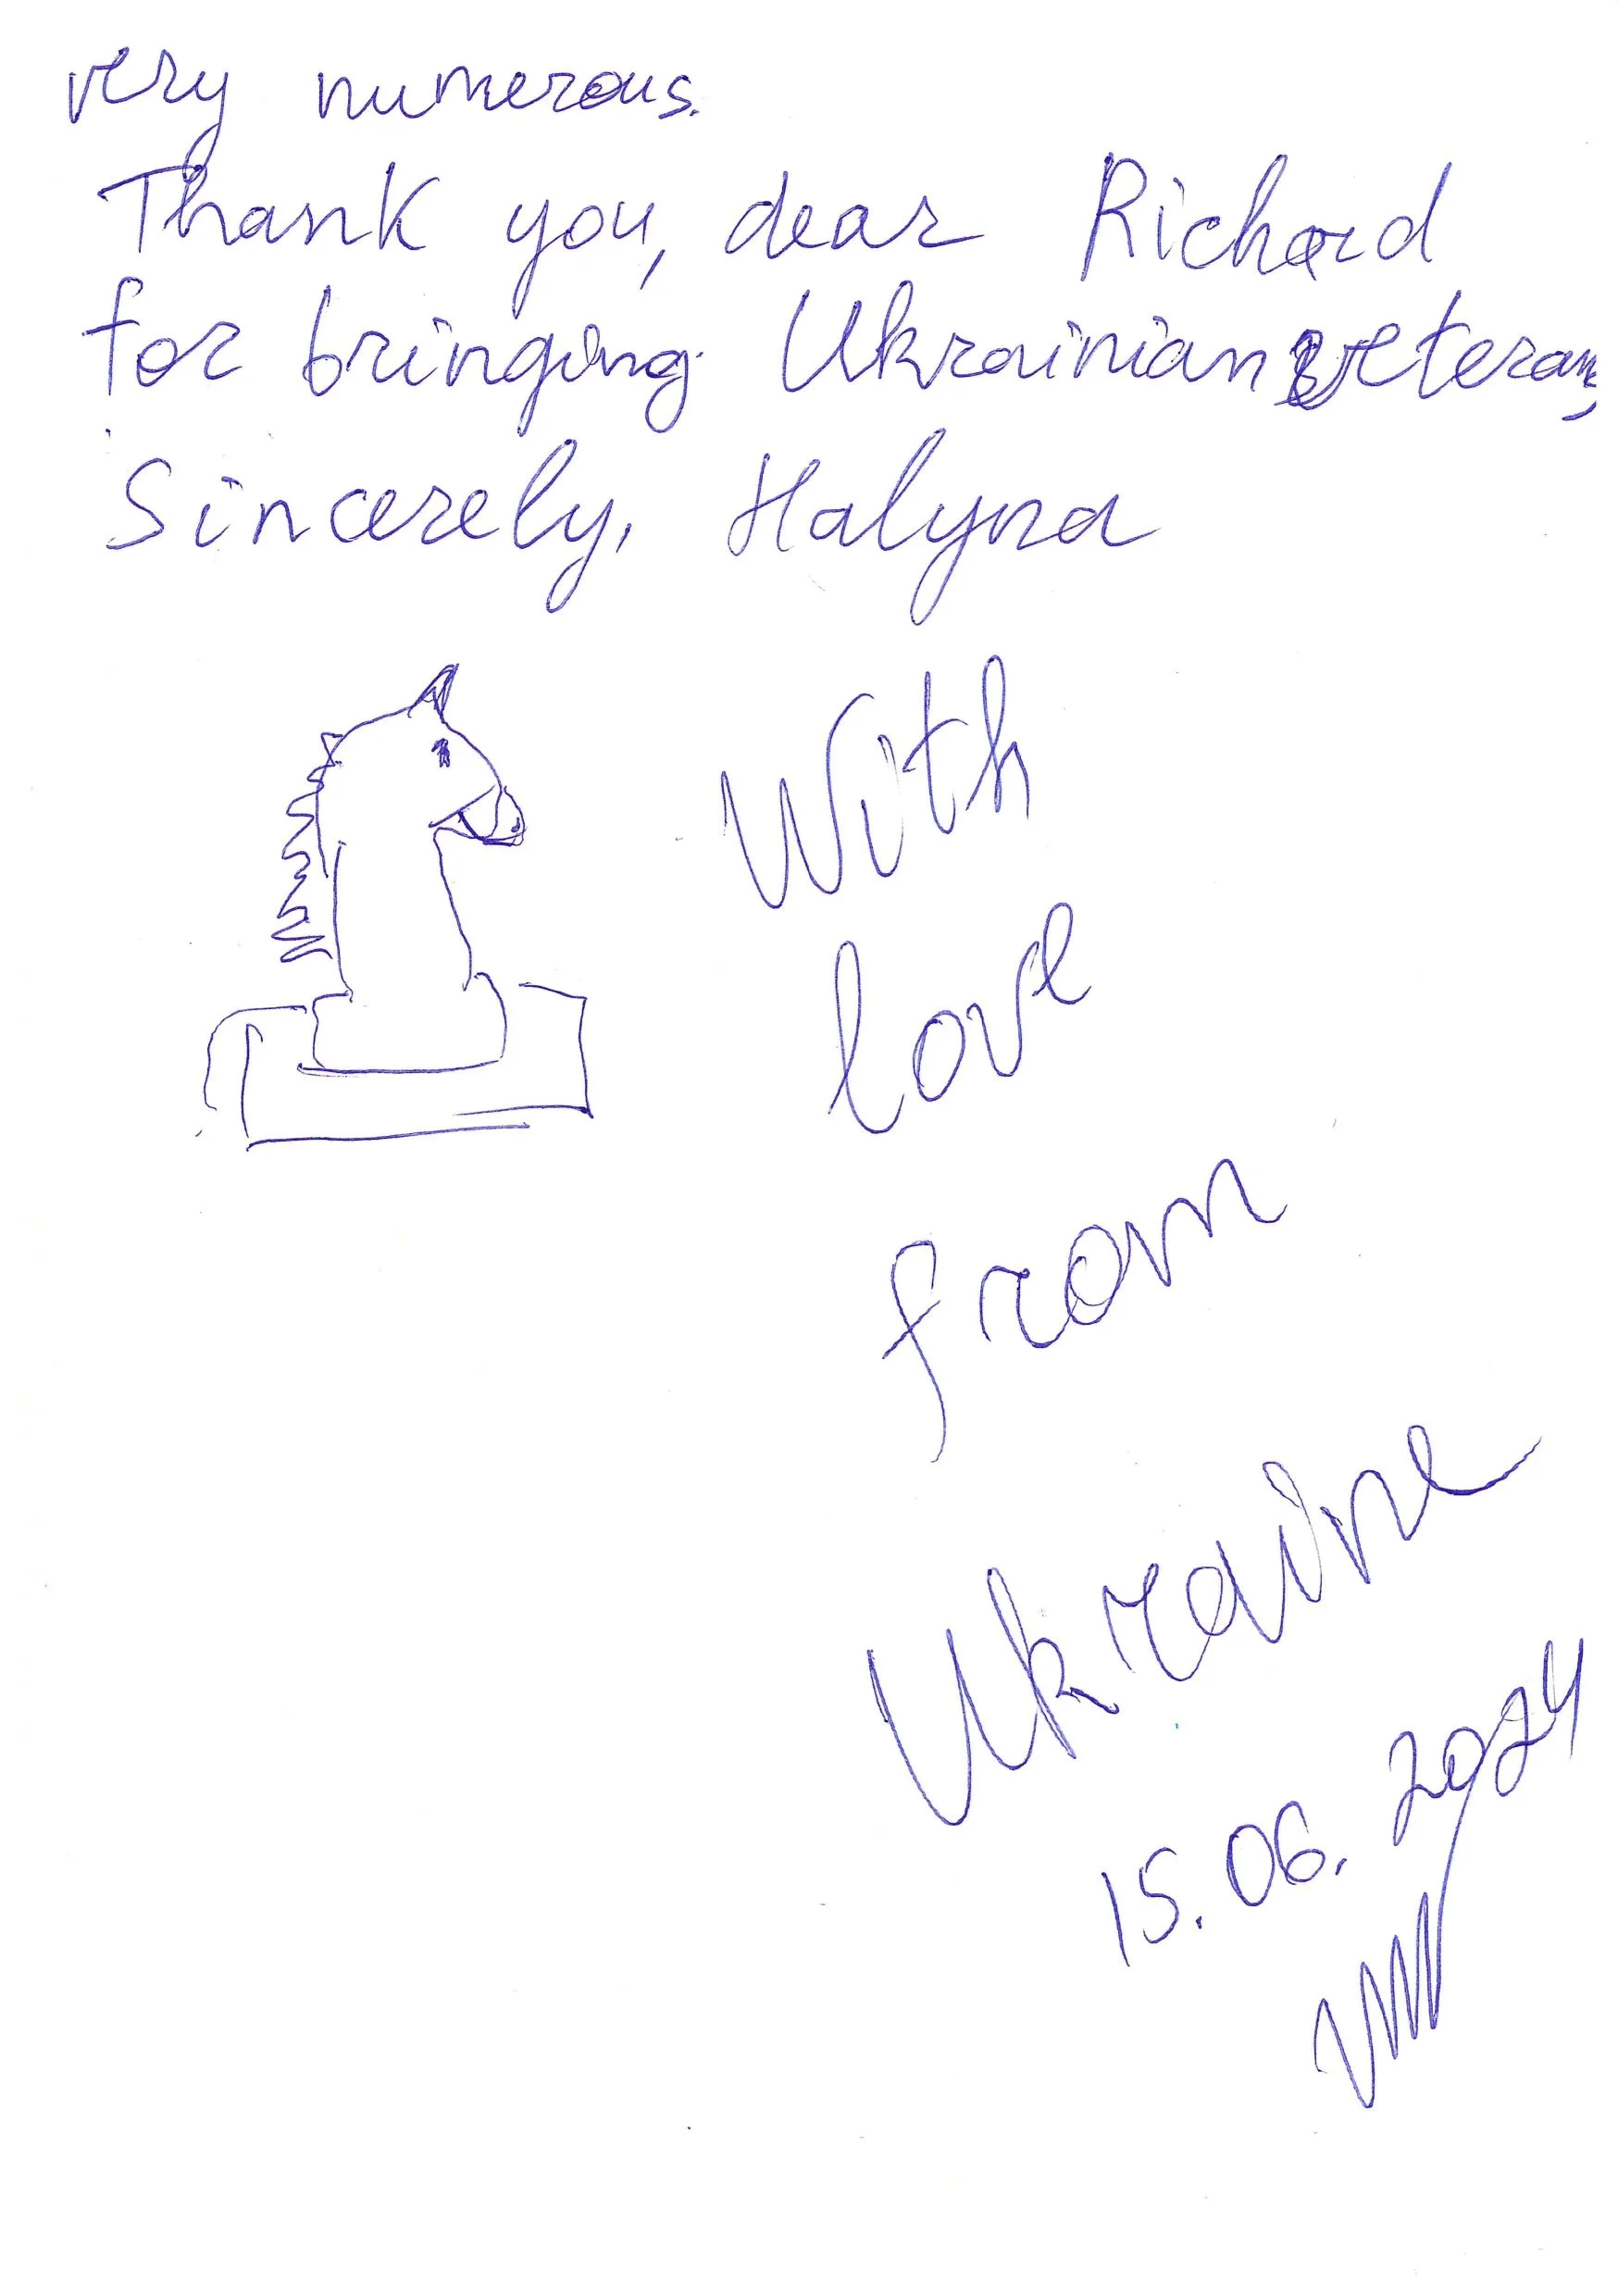 very numerous.
Thank you, dear Richard
for bringing Ukrainian veterans,
Sincerely, Halyna
With
love
from
Ukraine
15.06.2024